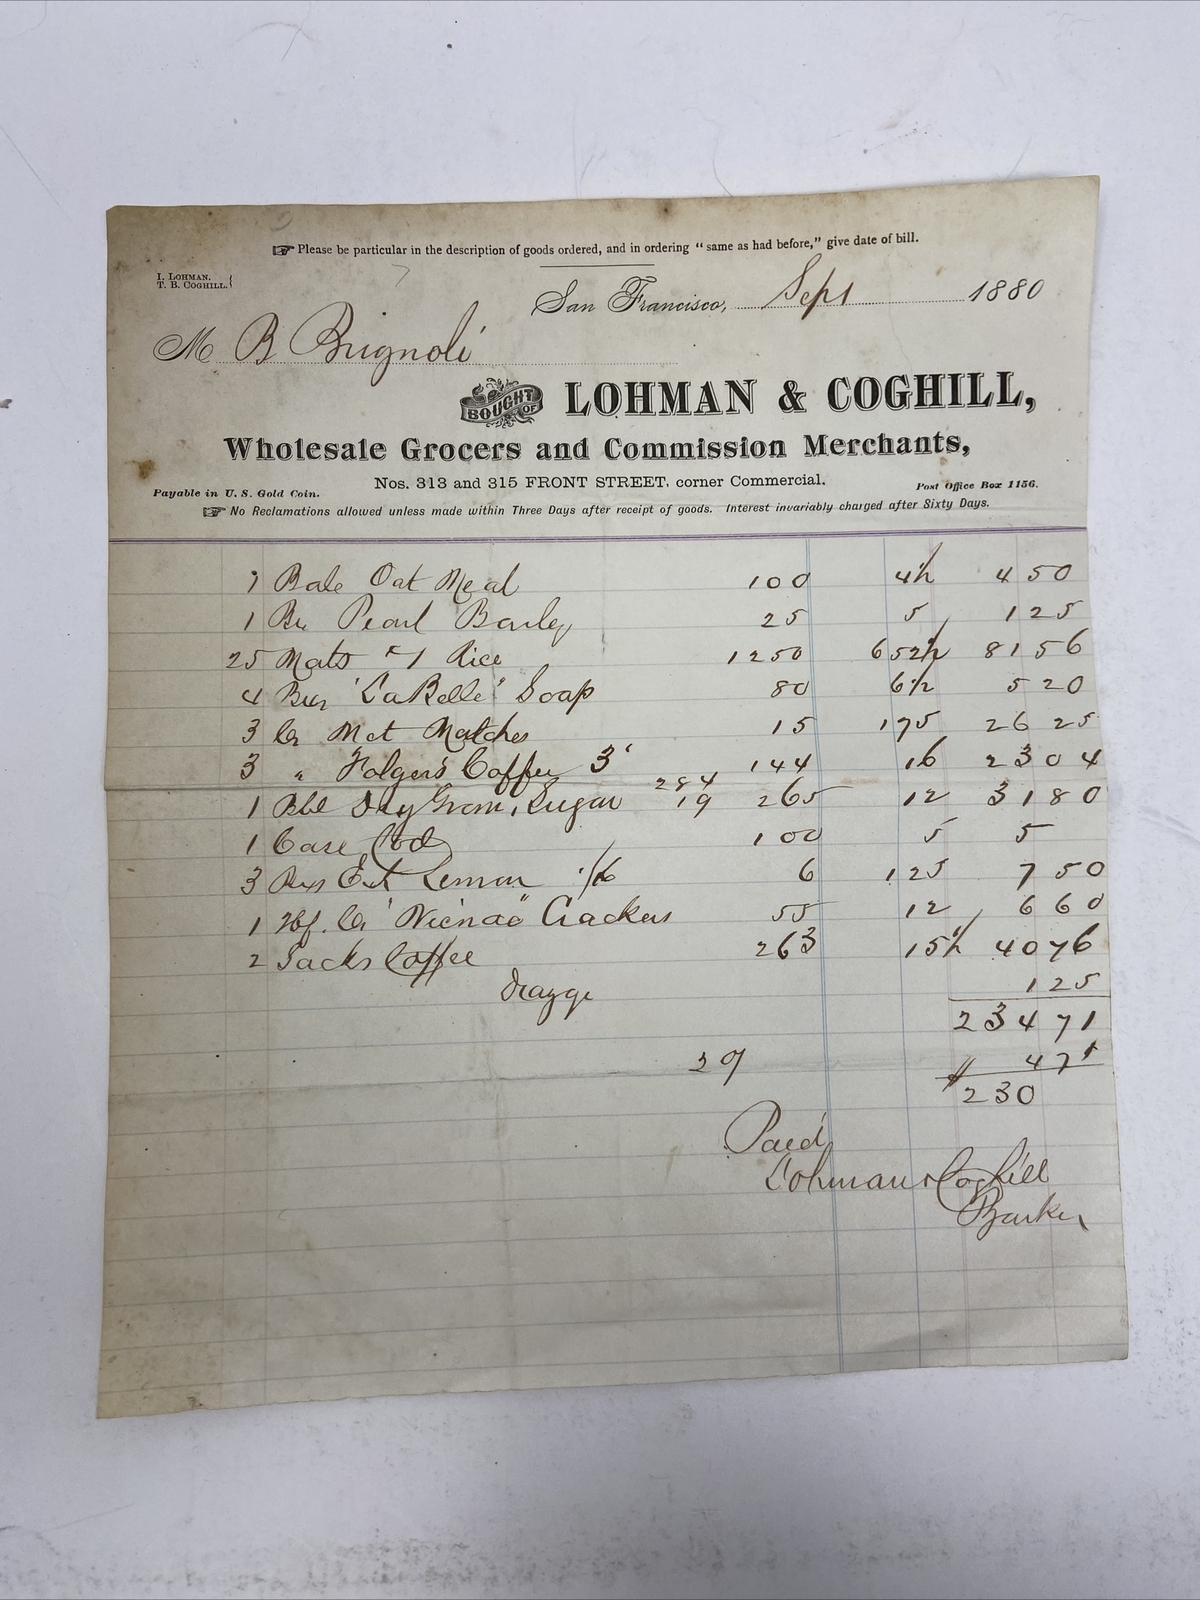 ☞ Please be particular in the description of goods ordered, and in ordering "same as had before," give date of bill.
I. LOHMAN.
T. B. COGHILL.
San Francisco, Sept 1880
M B Brignoli
BOUGHT OF LOHMAN & COGHILL,
Wholesale Grocers and Commission Merchants,
Nos. 313 and 315 FRONT STREET, corner Commercial.
Payable in U. S. Gold Coin. Post Office Box 1156.
☞ No Reclamations allowed unless made within Three Days after receipt of goods. Interest invariably charged after Sixty Days.
1 Bale Oat Meal 100 4½ 4 50
1 Bx Pearl Barley 25 5 1 25
25 Mats #1 Rice 1250 6 52½ 81 56
4 Bxs "La Belle" Soap 80 6½ 5 20
3 Cs Met Matches 15 1 75 26 25
3 " Folgers Coffee 3' 144 16 23 04
1 Bbl Dry Gran. Sugar 284 19 265 12 31 80
1 Case Cod 100 5 5
3 Ext Lemon 6 1 25 7 50
1 Hf. Cs "Vienna" Crackers 55 12 6 60
2 Sacks Coffee 263 15½ 40 76
Drayge 1 25
234 71
4 71
$ 230
Paid
Lohman & Coghill
Barker